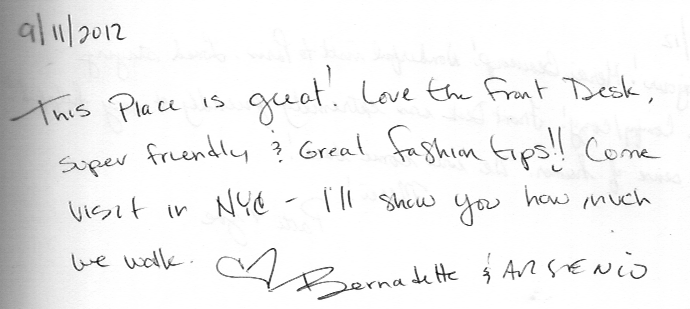 9/11/2012
This Place is great! Love the Front Desk,
super friendly & Great fashion tips!! Come
visit in NYC - I'll show you how much
we walk. ♡ Bernadette & ARSENIO